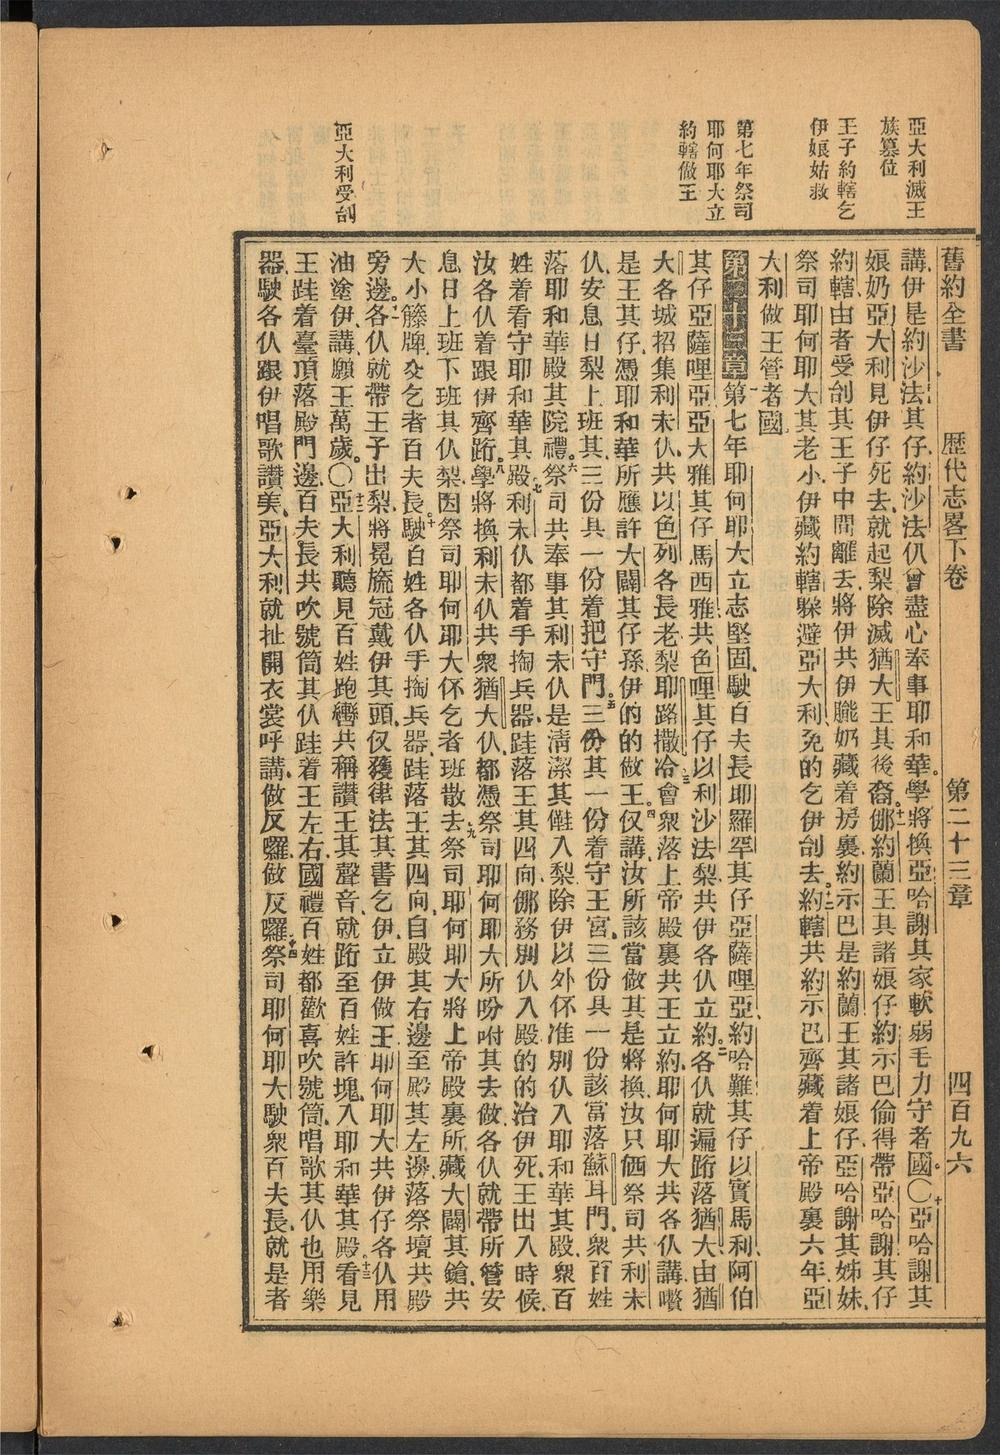 舊約全書 歷代志畧下卷 第二十三章 四百九六
亞大利滅王
族篡位
王子約轄乞
伊娘姑救
第七年祭司
耶何耶大立
約轄做王
亞大利受刣
講伊是約沙法其仔約沙法仈曾盡心奉事耶和華學將換亞哈謝其家軟弱毛力守者國〇十亞哈謝其
娘奶亞大利見伊仔死去就起梨除滅猶大王其後裔十一㑚約蘭王其諸娘仔約示巴偷得帶亞哈謝其仔
約轄由者受刣其王子中間離去將伊共伊䑋奶藏着房裏約示巴是約蘭王其諸娘仔亞哈謝其姊妹
祭司耶何耶大其老小伊藏約轄躲避亞大利免的乞伊刣去十二約轄共約示巴齊藏着上帝殿裏六年亞
大利做王管者國
第二十三章一第七年耶何耶大立志堅固駛百夫長耶羅罕其仔亞薩哩亞約哈難其仔以實馬利阿伯
其仔亞薩哩亞亞大雅其仔馬西雅共色哩其仔以利沙法梨共伊各仈立約二各仈就遍跴落猶大由猶
大各城招集利未仈共以色列各長老梨耶路撒冷三會衆落上帝殿裏共王立約耶何耶大共各仈講嚽
是王其仔憑耶和華所應許大闢其仔孫伊的的做王四仅講汝所該當做其是將換汝只㑚祭司共利未
仈安息日梨上班其三份具一份着把守門五三份其一份着守王宮三份具一份該當落蘇耳門衆百姓
落耶和華殿其院禮六祭司共奉事其利未仈是清潔其㑚入梨除伊以外伓准別仈入耶和華其殿衆百
姓着看守耶和華其殿七利未仈都着手掏兵器跬落王其四向㑚務別仈入殿的的治伊死王出入時候
汝各仈着跟伊齊跴八學將換利未仈共衆猶大仈都憑祭司耶何耶大所吩咐其去做各仈就帶所管安
息日上班下班其仈梨因祭司耶何耶大伓乞者班散去九祭司耶何耶大將上帝殿裏所藏大闢其鎗共
大小籐牌交乞者百夫長十駛百姓各仈手掏兵器跬落王其四向自殿其右邊至殿其左邊落祭壇共殿
旁邊十一各仈就帶王子出梨將冕旒冠戴伊其頭仅獲律法其書乞伊立伊做王耶何耶大共伊仔各仈用
油塗伊講願王萬歲〇十二亞大利聽見百姓跑轡共稱讚王其聲音就跴至百姓許塊入耶和華其殿十三看見
王跬着臺頂落殿門邊百夫長共吹號筒其仈跬着王左右國禮百姓都歡喜吹號筒唱歌其仈也用樂
器駛各仈跟伊唱歌讚美亞大利就扯開衣裳呼講做反囉做反囉十四祭司耶何耶大駛衆百夫長就是者